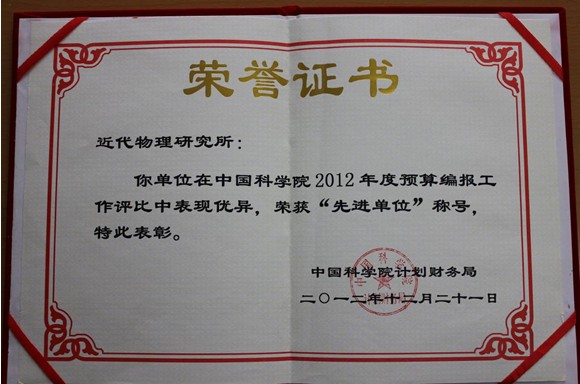 荣誉证书
近代物理研究所：
你单位在中国科学院2012年度预算编报工
作评比中表现优异，荣获“先进单位”称号，
特此表彰。
中国科学院计划财务局
二〇一二年十二月二十一日